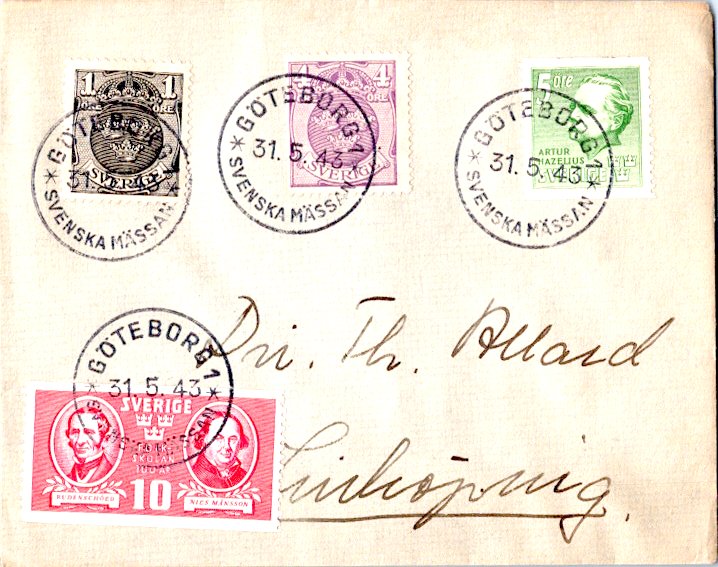 1 1
ÖRE
SVERIGE
GÖTEBORG 1
31.5.43
* SVENSKA MÄSSAN *
4 4
ÖRE
SVERIGE
GÖTEBORG 1
31.5.43
* SVENSKA MÄSSAN *
5 öre
ARTUR
HAZELIUS
SVERIGE
GÖTEBORG 1
31.5.43
* SVENSKA MÄSSAN *
GÖTEBORG 1
31.5.43
* SVENSKA MÄSSAN *
SVERIGE
FOLK
SKOLAN
100 ÅR
RUDENSCHÖLD
10
NILS MÅNSSON
Th. Allard
Linköping.